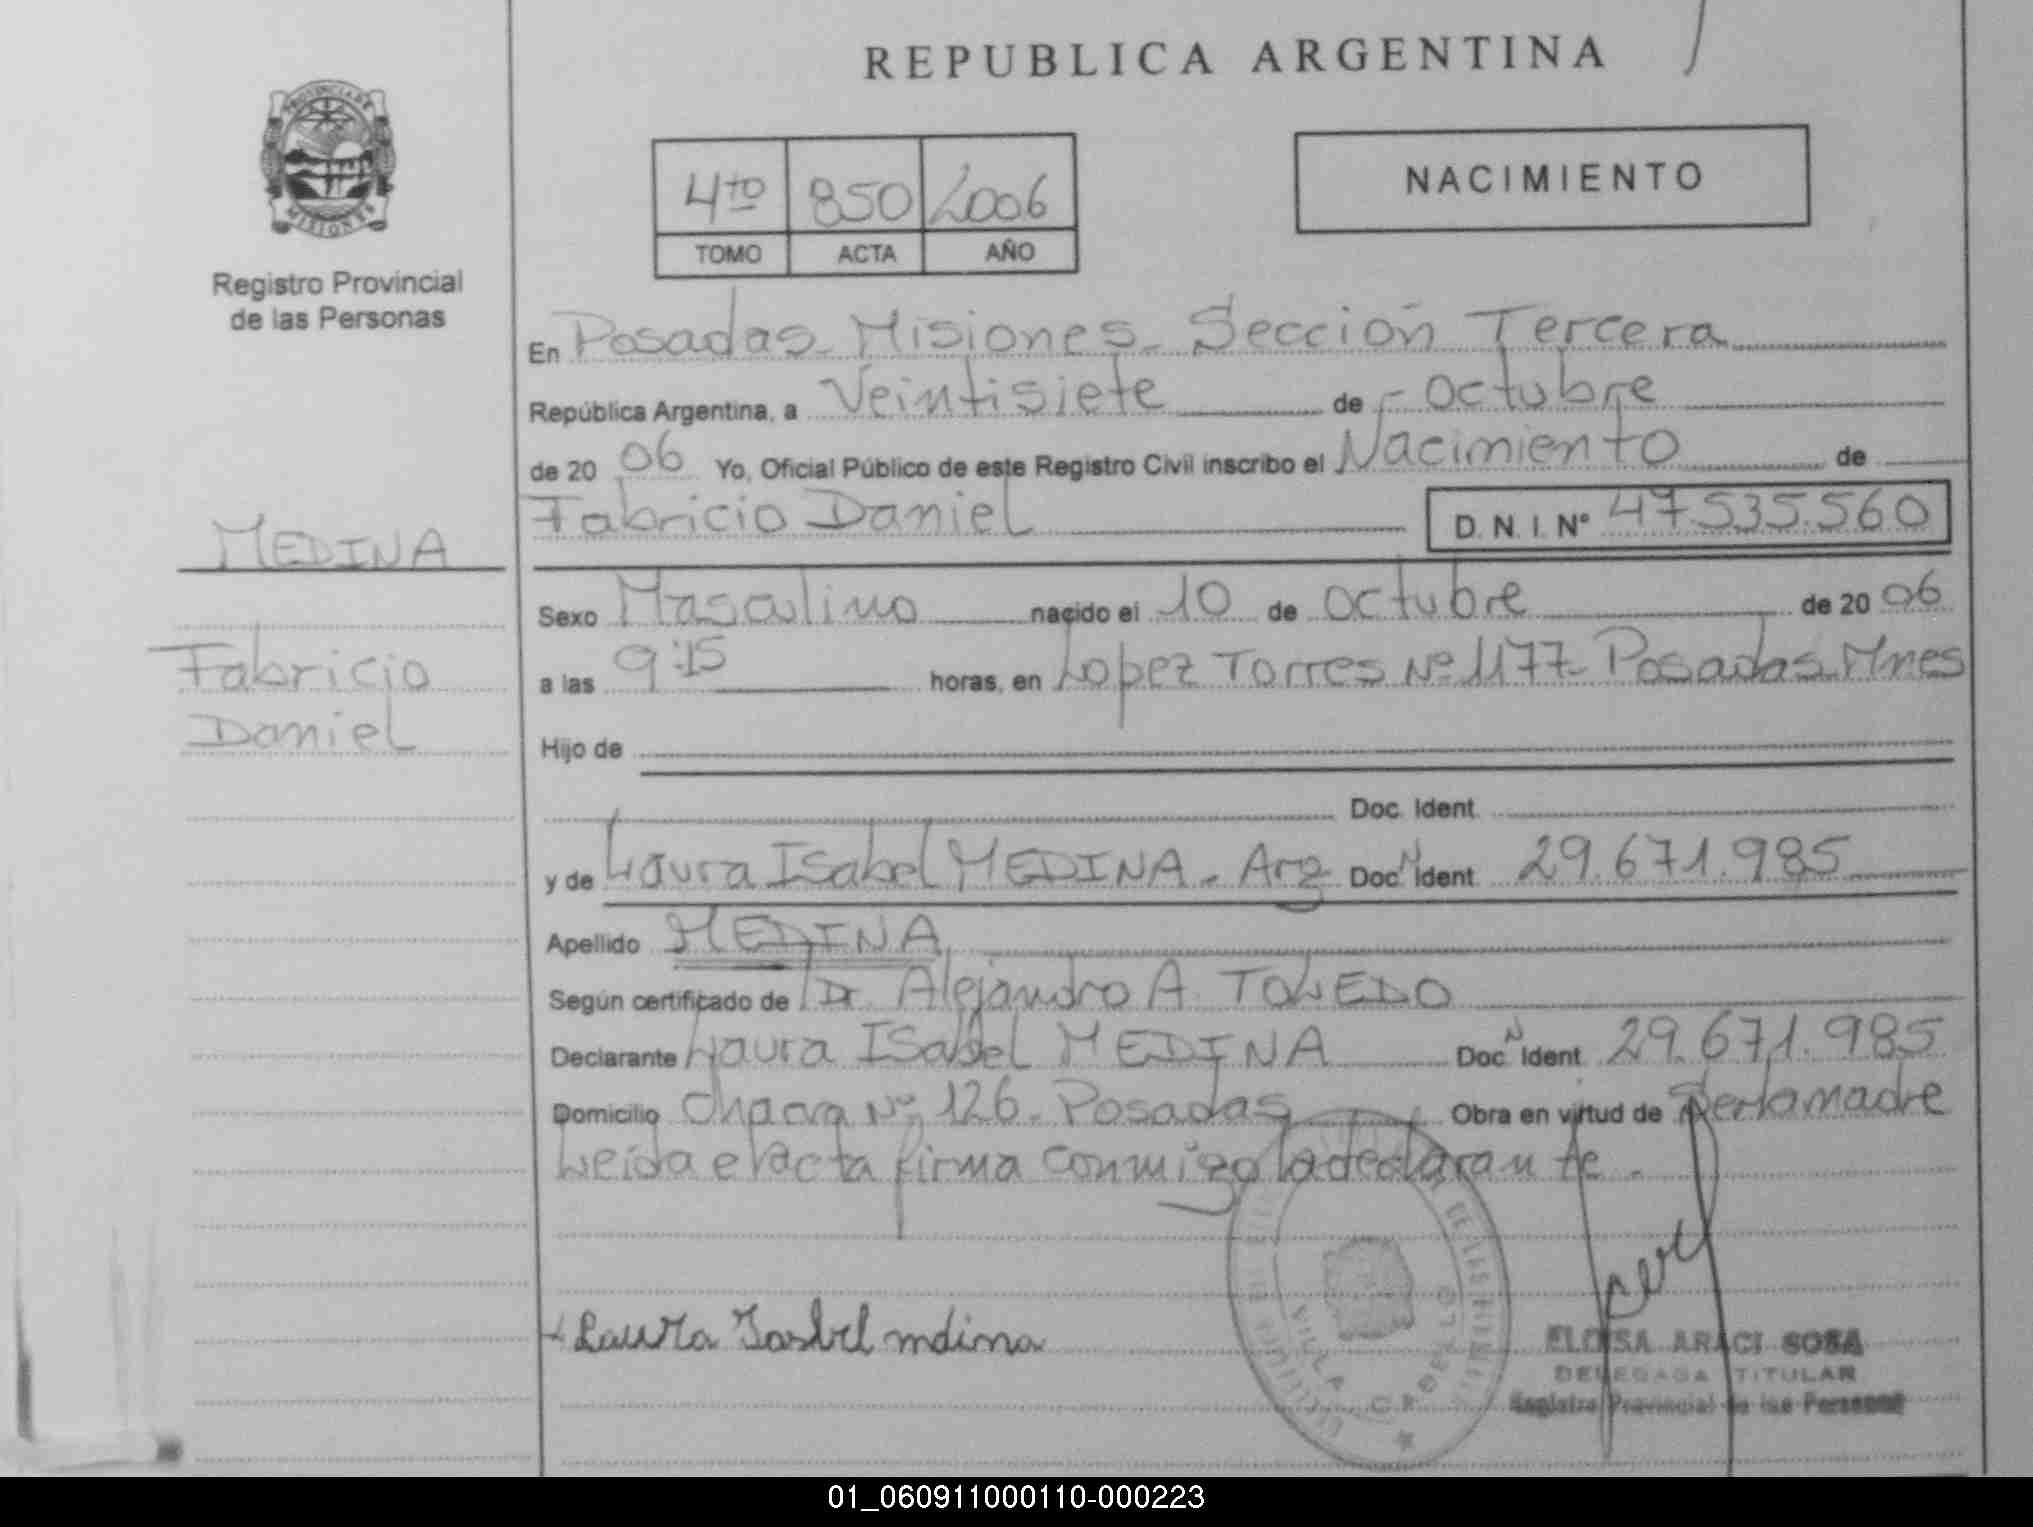 REPUBLICA ARGENTINA
PROVINCIA DE
MISIONES
Registro Provincial
de las Personas
4to 850 2006
TOMO ACTA AÑO
NACIMIENTO
En Posadas - Misiones - Sección Tercera
República Argentina, a Veintisiete de Octubre
de 20 06 Yo, Oficial Público de este Registro Civil inscribo el Nacimiento de
Fabricio Daniel D. N. I. Nº 47.535.560
MEDINA
Fabricio
Daniel
Sexo Masculino nacido el 10 de Octubre de 20 06
a las 9:15 horas, en Lopez Torres Nº 1177 - Posadas - Mnes
Hijo de
Doc. Ident.
y de Laura Isabel MEDINA - Arg Doc. Ident. 29.671.985
Apellido MEDINA
Según certificado de Dr. Alejandro A. TOLEDO
Declarante Laura ISabel MEDINA Doc. Ident. 29.671.985
Domicilio Chacra Nº 126 - Posadas Obra en virtud de Ser la madre
Leída el acta firma conmigo la declarante.
Laura Isabel mdina
VILLA CABELLO
ELOISA ARACI SOSA
DELEGADA TITULAR
Registro Provincial de las Personas
01_060911000110-000223